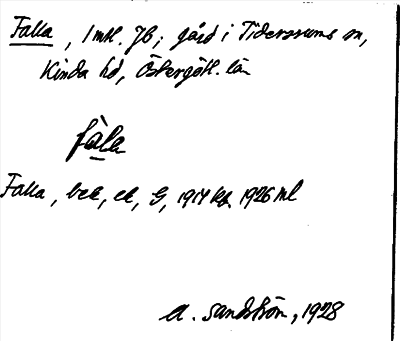 Falla, 1 mtl. Jb; gård i Tidersrums sn,
Kinda hd, Östergötl. län
fàla
Falla, bek, ek, G, 1917 kg 1926 ml
A. Sandström, 1928